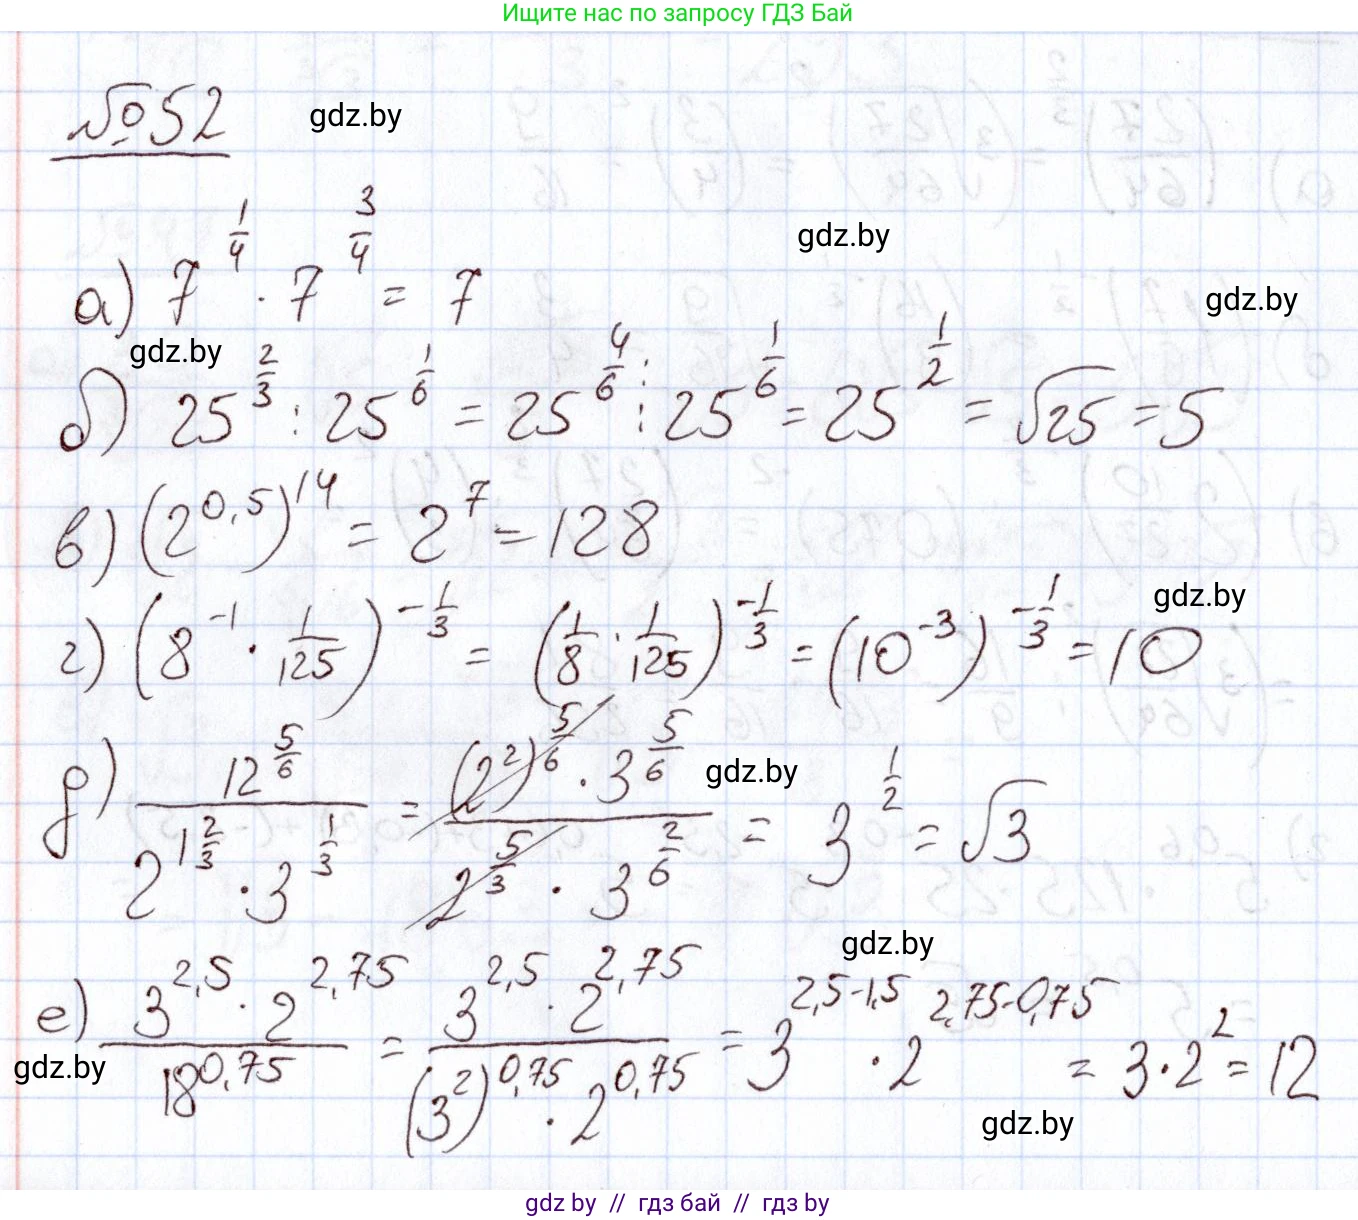 Ищите нас по запросу ГДЗ Бай
№ 52
gdz.by
gdz.by
а) 7^{1/4} · 7^{3/4} = 7
gdz.by
gdz.by
б) 25^{2/3} : 25^{1/6} = 25^{4/6} : 25^{1/6} = 25^{1/2} = √25 = 5
в) (2^{0,5})^{14} = 2^7 = 128
gdz.by
г) (8^{-1} · 1/125)^{-1/3} = (1/8 · 1/125)^{-1/3} = (10^{-3})^{-1/3} = 10
gdz.by
д) 12^{5/6} / (2^{1 2/3} · 3^{1/3}) = ((2^2)^{5/6} · 3^{5/6}) / (2^{5/3} · 3^{2/6}) = 3^{1/2} = √3
gdz.by
е) (3^{2,5} · 2^{2,75}) / 18^{0,75} = (3^{2,5} · 2^{2,75}) / ((3^2)^{0,75} · 2^{0,75}) = 3^{2,5-1,5} · 2^{2,75-0,75} = 3 · 2^2 = 12
gdz.by
gdz.by
gdz by // гдз бай // гдз by